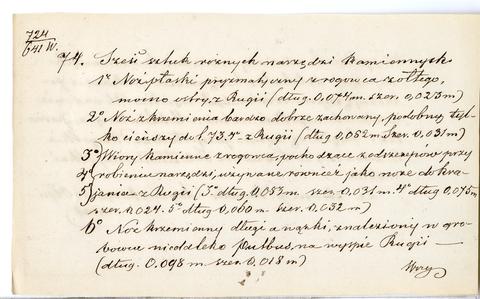 724
641 W.
74. Sześć sztuk różnych narzędzi kamiennych
1º Nóż płaski pryzmatyczny z rogowca żółtego,
mocno ostry, z Rugii (dług. 0,074 m. szer. 0,023 m)
2º Nóż z krzemienia bardzo dobrze zachowany, podobny tyl-
ko cieńszy do l. 73. 4º z Rugii (dług 0,062 m szer. 0,031 m)
3º Wióry kamienne z rogowca, pochodzące z odszczepów przy
4º robieniu narzędzi, używane również jako noże do kra-
5º jania - z Rugii (3º dług 0,053 m. szer. 0,031 m. 4º dług 0,075 m
szer. 0.024. 5º dług 0,060 m. szer. 0,032 m)
6º Nóż krzemienny długi a wązki, znaleziony w gro-
bowcu niedaleko Putbus, na wyspie Rugii
(dług. 0.098 m szer. 0,018 m)